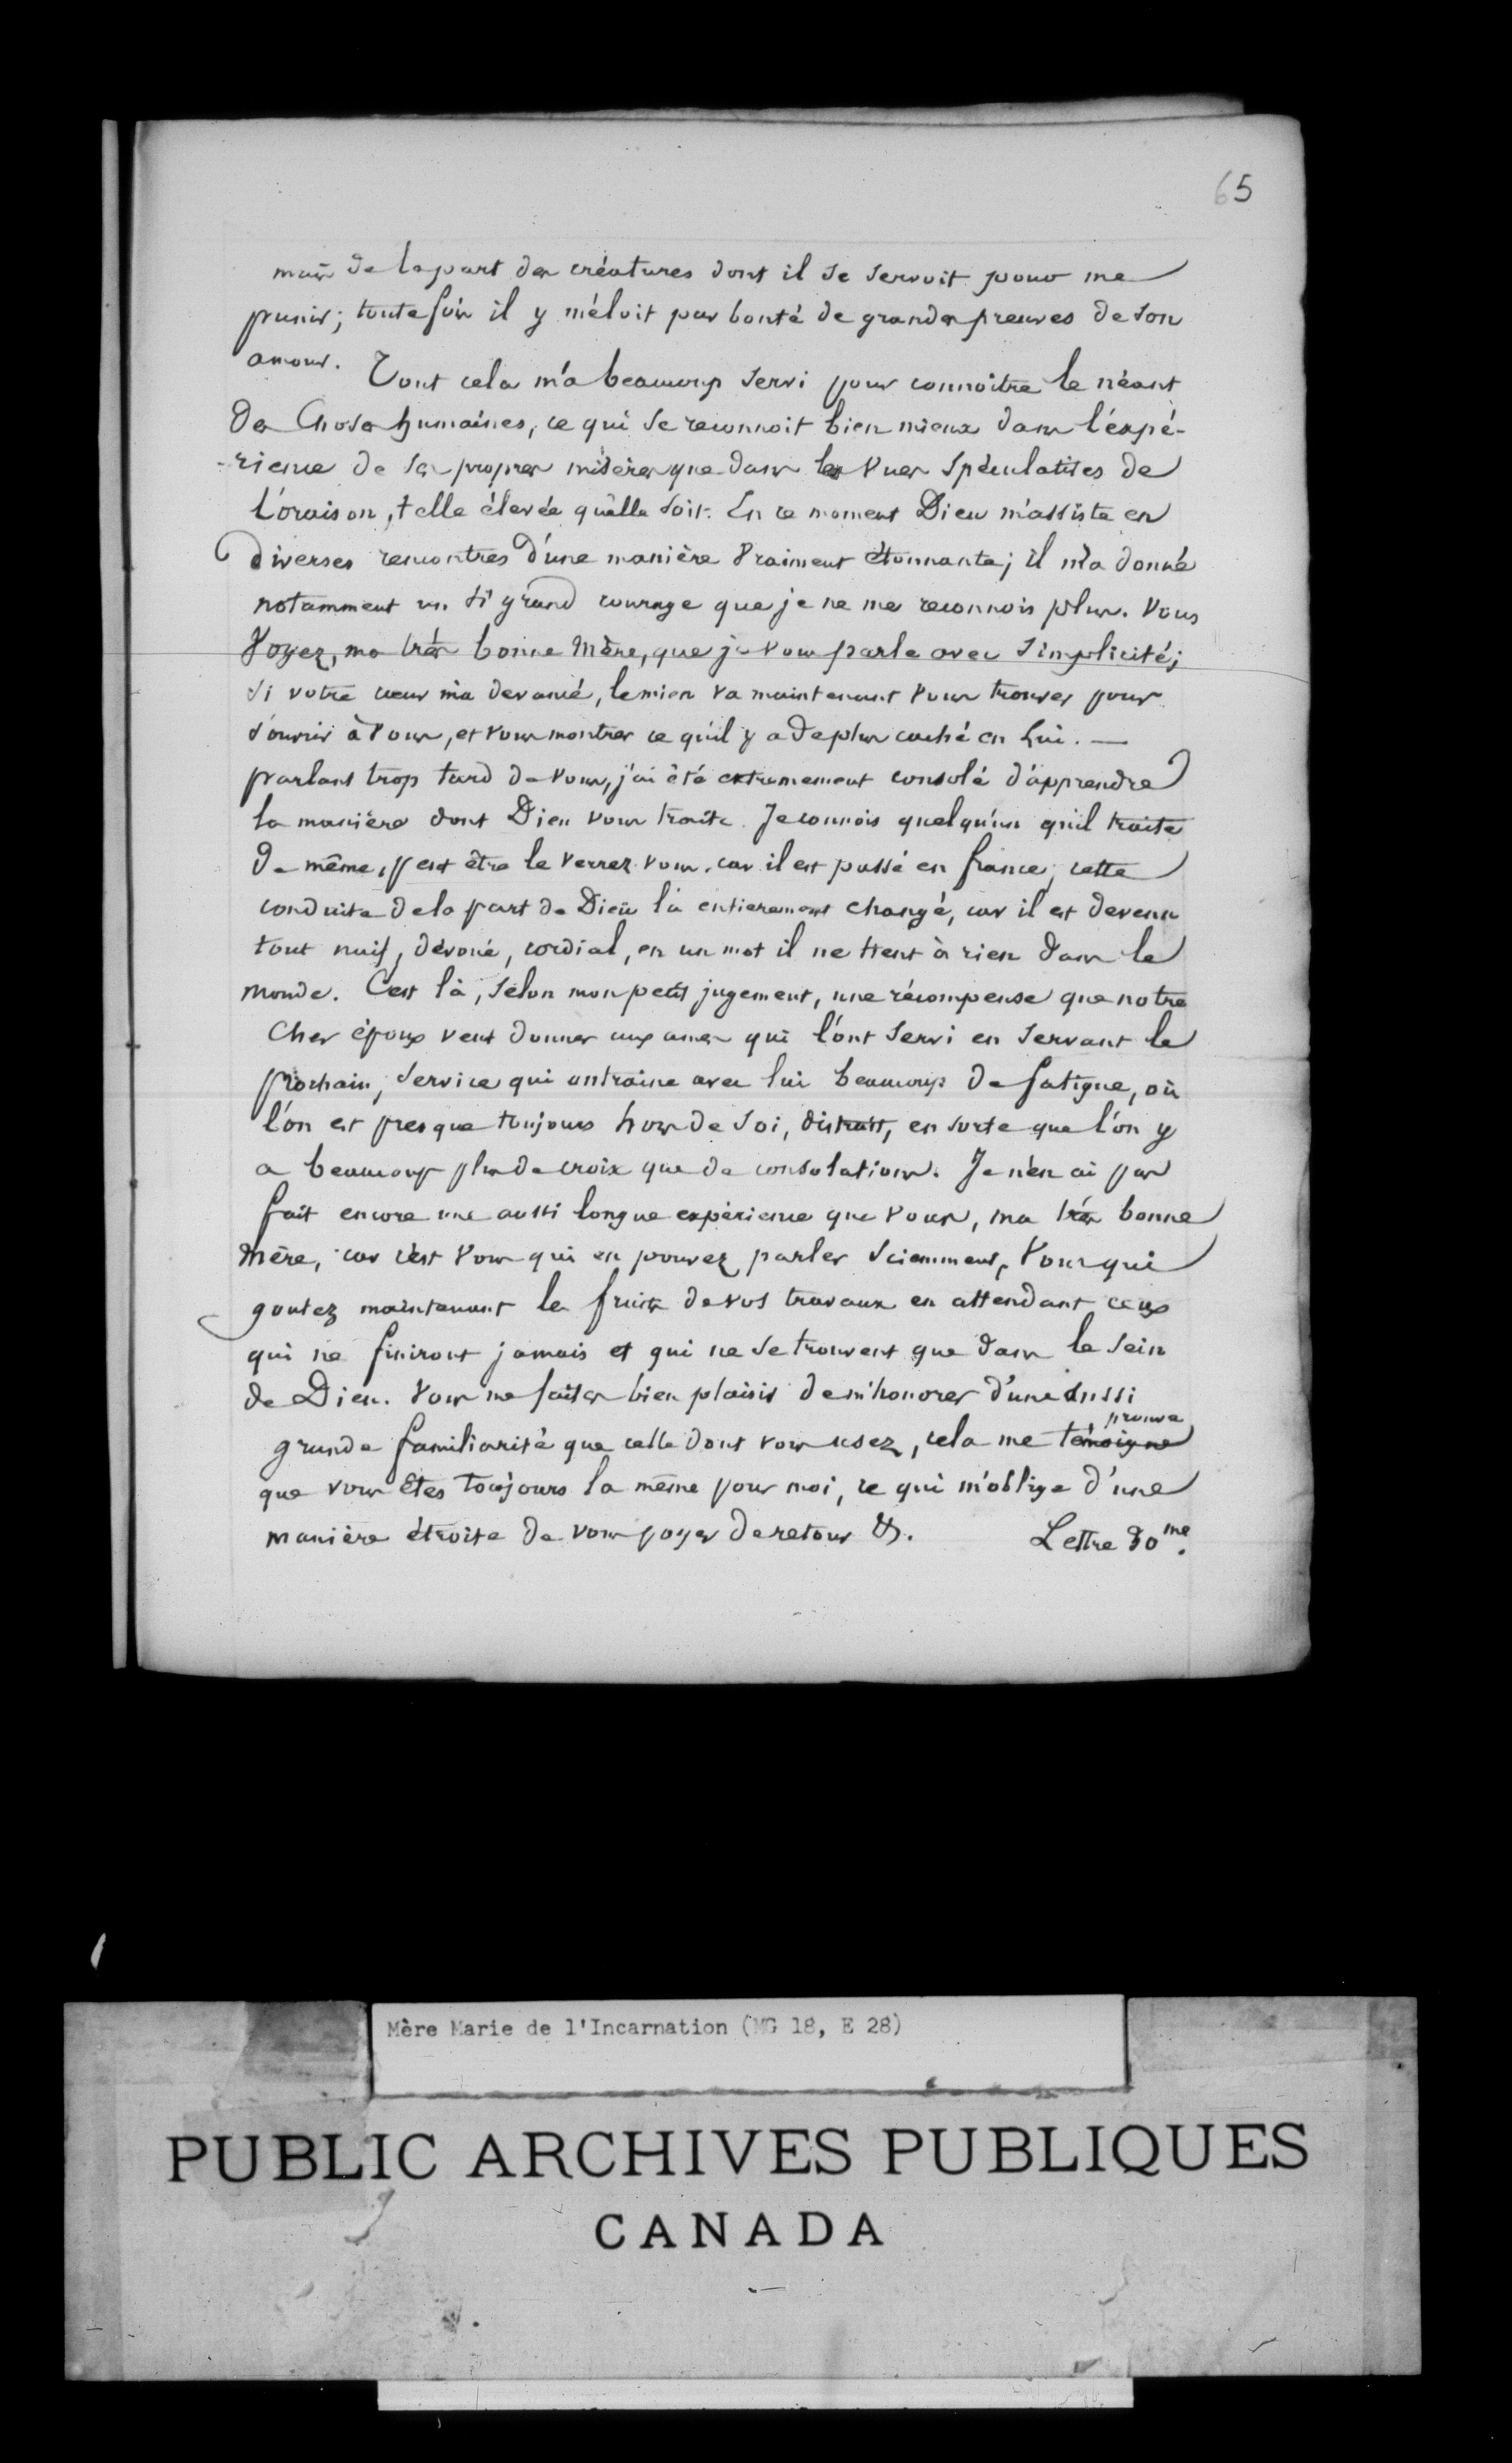 65
mais de la part des créatures dont il se servoit pour me
punir; toutefois il y mêloit par bonté de grandes preuves de son
amour. Tout cela m'a beaucoup servi pour connoître le néant
des choses humaines, ce qui se reconnoit bien mieux dans l'expé-
-rience de ses propres misères que dans les vues spéculatives de
l'oraison, telle élevée quelle soit. En ce moment Dieu m'assiste en
diverses rencontres d'une manière vraiment étonnante; il m'a donné
notamment un si grand courage que je ne me reconnois plus. Vous
Voyez, ma très bonne Mère, que je vous parle avec simplicité;
si votre cœur m'a devancé, le mien va maintenant vous trouver pour
s'ouvrir à vous, et vous montrer ce qu'il y a de plus caché en lui. —
parlant trop tard de vous, j'ai été extremement consolé d'apprendre
la manière dont Dieu vous traite. Je connois quelqu'un qu'il traite
de même, peut être le verrez vous, car il est passé en france; cette
conduite de la part de Dieu l'a entierement changé, car il est devenu
tout naif, dévoué, cordial, en un mot il ne tient à rien dans le
monde. C'est là, selon mon petit jugement, une récompense que notre
Cher époux veut donner aux ames qui l'ont servi en servant le
prochain, service qui entraine avec lui beaucoup de fatigue, où
l'on est presque toujours hors de soi, distrait, en sorte que l'on y
a beaucoup plus de croix que de consolations. Je n'en ai pas
fait encore une aussi longue expérience que vous, ma très bonne
Mère, car c'est vous qui en pouvez parler sciemment, vous qui
goutez maintenant les fruits de vos travaux en attendant ceux
qui ne finiront jamais et qui ne se trouvent que dans le sein
de Dieu. Vous me faites bien plaisir de m'honorer d'une aussi
prouve
grande familiarité que celle dont vous usez, cela me témoigne
que vous êtes toujours la même pour moi, ce qui m'oblige d'une
manière étroite de vous payer de retour &. Lettre 30me.
Mère Marie de l'Incarnation (MG 18, E 28)
PUBLIC ARCHIVES PUBLIQUES
CANADA